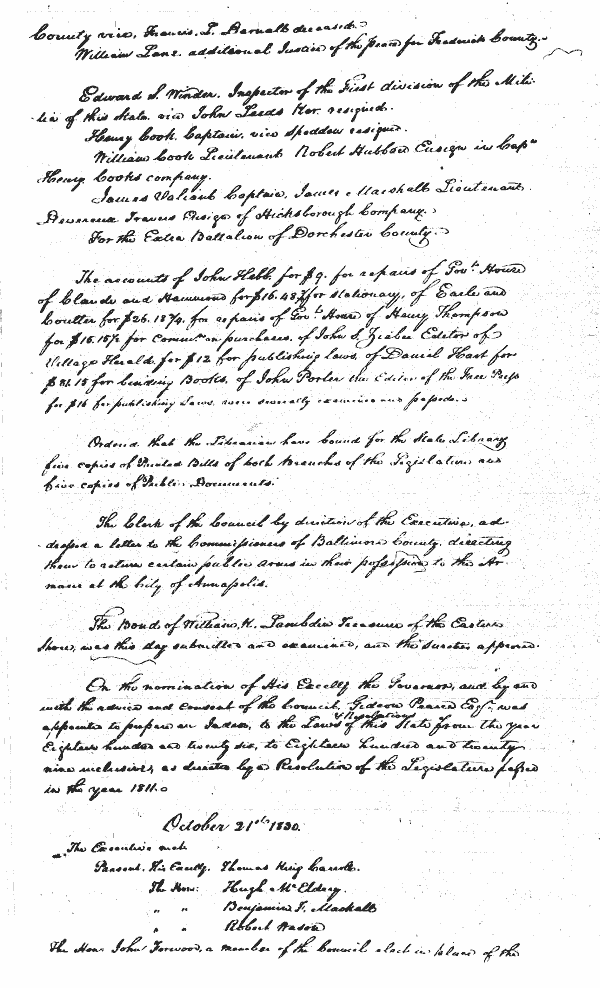 County vice, Francis. L. Darnall deceased.
William Lane. additional Justice of the peace for Frederick County.
Edward S. Winder. Inspector of the First division of the Mili-
-tia of this State. vice John Leeds Kerr. resigned.
Henry Cook. Captain. vice Spedden resigned.
William Cook Lieutenant Robert Hubbard Ensign in Capn
Henry Cooks company.
James Valiant Captain, James Marshall Lieutenant.
Devereux Travers Ensign of Hicksborough Company.
For the Extra Battalion of Dorchester County.
The accounts of John Hebb. for $9. for repairs of Govt. House
of Claude and Hammond for $16.48½ for stationary, of Earle and
Coulter for $26.18¾. for repairs of Govt. House of Henry Thompson
for $15.15½ for purchases, of John S. Editor of
Village Herald, for $12 for publishing laws, of Daniel Hart for
for binding Books, of John Porter the Editor of the Free Press
for $16 for publishing Laws. were severally examined and passed.
Ordered that the Librarian have bound for the State Library
five copies of Printed Bills of both branches of the Legislature and
five copies of Public Documents.
The Clerk of the Council by direction of the Executive, ad-
-dressed a letter to the Commissioners of Baltimore County. directing
them to return certain public arms in their possession to the Ar-
-morer at the City of Annapolis.
The Bond of William, H. Lambdin Treasurer of the Eastern
Shore, was this day submitted and examined, and the sureties approved.
On the nomination of His Excelly the Governor, and by and
with the advice and consent of the Council. Gideon Pearce Esqr. was
appointed to prepare an Index, to the Laws & Resolutions of this State from the year
Eighteen hundred and twenty six, to Eighteen hundred and twenty
nine inclusive, as directed by a Resolution of the Legislature passed
in the year 1811.
October 21st 1830.
The Executive met
Present. His Excelly. Thomas King Carroll.
The Hon: Hugh McEldery.
" " Benjamin F. Mackall
" " Robert Wason
The Hon: John Forwood, a member of the Council elect in place of the